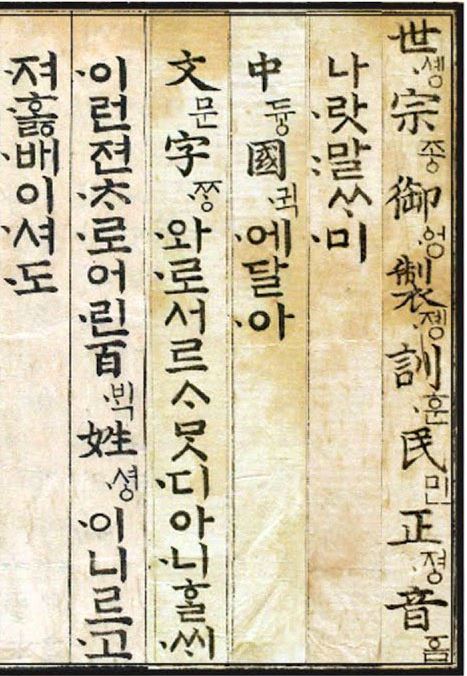 世솅宗조ᇰ御ᅌᅥᆼ製졩訓훈民민正져ᇰ音ᅙᅳᆷ
나랏말ᄊᆞ미
中듀ᇰ國귁에달아
文문字ᄍᆞᆼ와로서르ᄉᆞᄆᆞᆺ디아니ᄒᆞᆯᄊᆡ
이런젼ᄎᆞ로어린百ᄇᆡᆨ姓셔ᇰ이니르고
져호ᇙ배이셔도